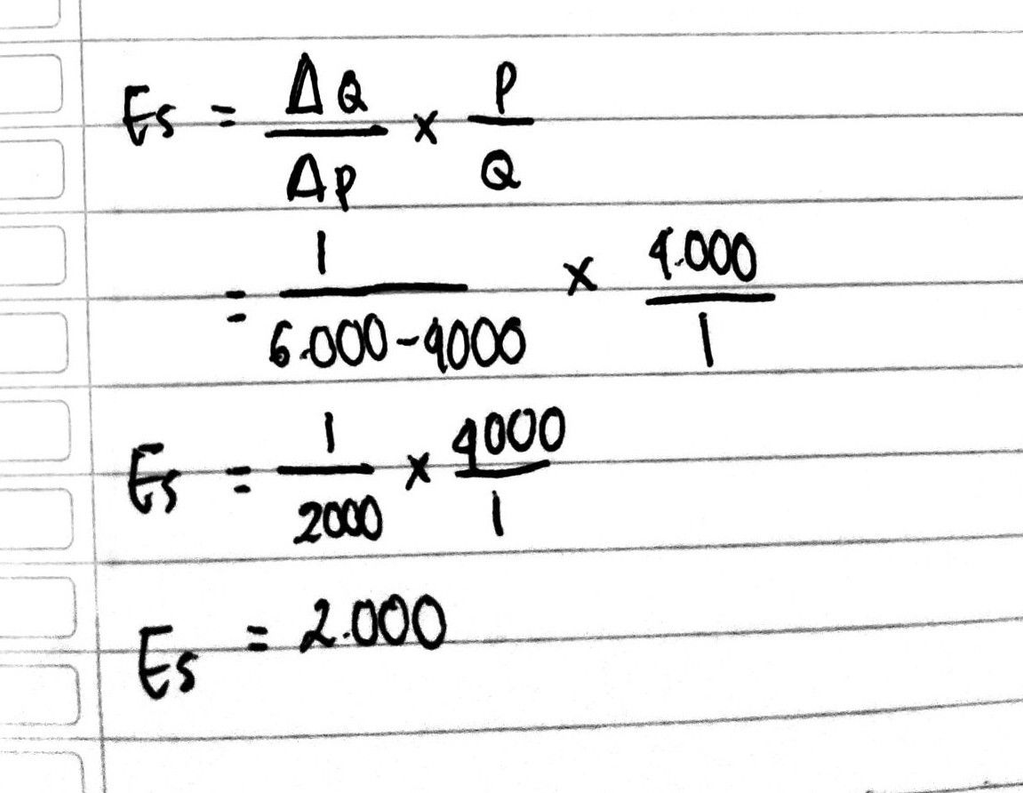 Es = ΔQ/ΔP × P/Q
= 1/6.000-4000 × 4.000/1
Es = 1/2000 × 4000/1
Es = 2.000